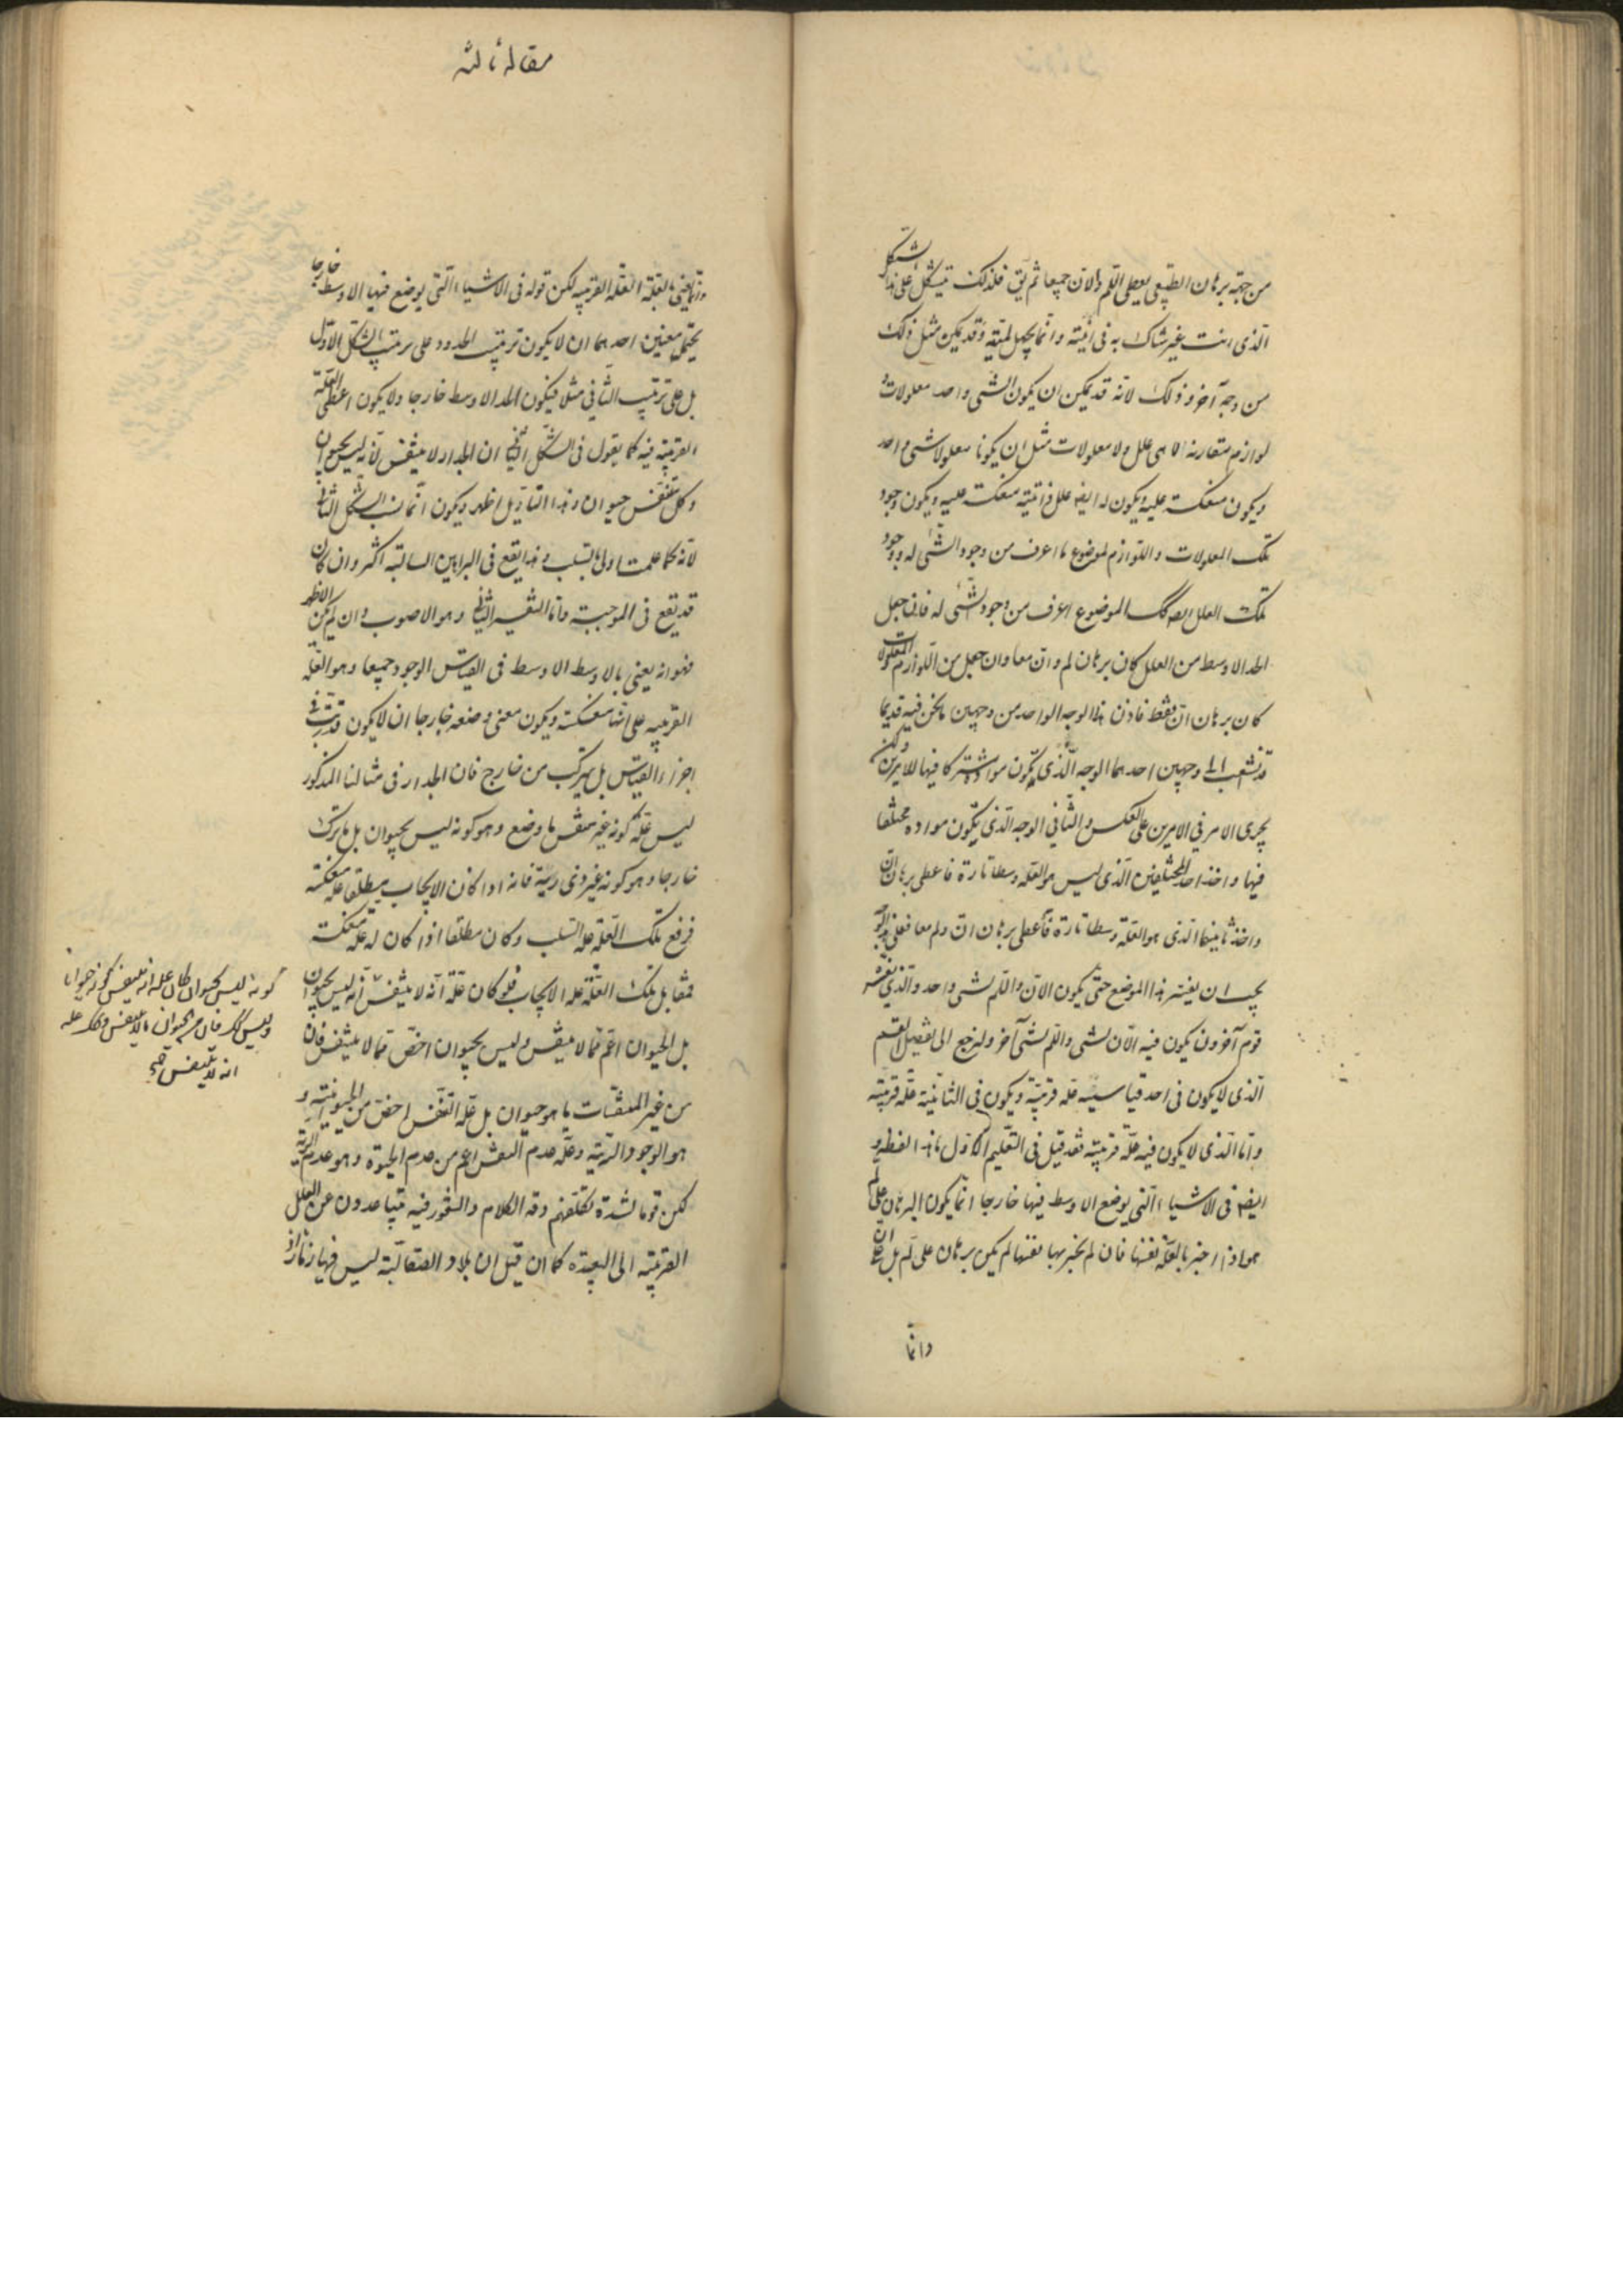 من جهة برهان الطبيعى يعطى اللم والان جميعا ثم يق فلذلك تشكل على هذا الشكل
الذى انت غير شاك به فى انيته وانما يجهل لميته وقد يمكن مثل ذلك
من وجه آخر وذلك لانه قد يمكن ان يكون الشى واحد معلولات و
لوازم متقارنة لا هى علل ولا معلولات مثل ان يكونا معلولا شى واحد
ويكون منعكسة عليه ويكون له ايضا علل ذاتية منعكسة عليه ويكون وجود
تلك المعلولات واللوازم لموضوع ما اعرف من وجود الشى له ووجود
تلك العلل ايضا كك للموضوع اعرف من وجود الشى له فان جعل
الحد الاوسط من العلل كان برهان لم وان معا وان جعل من اللوازم والمعلولات
كان برهان ان فقط فاذن هذا الوجه الواحد من وجهين ما نحن فيه قديما
قد تشعب الى وجهين احدهما الوجه الذى يكون مواده مشتركا فيها للامرين ولكن
يجرى الامر فى الامرين على العكس والثانى الوجه الذى يكون مواده مختلفا
فيها واخذ احد المختلفين الذى ليس هو العلة وسطا تارة فاعطى برهان ان
واخذ ثانيهما الذى هو العلة وسطا تارة فاعطى برهان ان ولم معا فعلى هذا الوجه
يجب ان يفسر هذا الموضع حتى يكون الان واللم لشى واحد والذى يفسره
قوم آخرون يكون فيه الان لشى واللم لشى آخر ولنرجع الى تفصيل القسم
الذى لا يكون فى احد قياسيه علة قريبة ويكون فى الثانية علة قريبة
واما الذى لا يكون فيه علة قريبة فقد قيل فى التعليم الاول هذه اللفظة و
ايضا فى الاشياء التى يوضع الاوسط فيها خارجا انما يكون البرهان على لم
هو اذا اخبر بالعلة نفسها فان لم يخبر بها نفسها لم يكن برهان على لم بل على ان
وانما
مقاله ثالثه
وانما يعنى بالعلة العلة القريبة لكن قوله فى الاشياء التى يوضع فيها الاوسط خارجا
يحتمل معنيين احدهما ان لا يكون ترتيب الحدود على ترتيب الشكل الاول
بل على ترتيب الثانى مثلا فيكون الحد الاوسط خارجا ولا يكون اعطى العلة
القريبة فيه كما يقول فى الشكل الثانى ان الجدار لا يتنفس لانه ليس بحيوان
وكل متنفس حيوان وهذا التأويل اظهر ويكون انما نسب الشكل الثانى
لانه كما علمت اولى بالسلب وهذا يقع فى البراهين السالبة اكثر وان كان
قد يقع فى الموجبة واما التفسير الثانى وهو الاصوب وان لم يكن الاظهر
فهو انه يعنى بالاوسط الاوسط فى القياس الوجود جميعا وهو العلة
القريبة على انها منعكسة ويكون معنى وضعه خارجا ان لا يكون قد رتب فى
اجزاء القياس بل يترك من خارج فان الجدار فى مثالنا المذكور
ليس علة كونه غير متنفس ما وضع وهو كونه ليس بحيوان بل ما ترك
خارجا وهو كونه غير ذى رية فانه اذا كان الايجاب مطلقا علة منعكسة
فرفع تلك العلة علة السلب وكان مطلقا اذا كان له علة منعكسة
فمقابل تلك العلة علة الايجاب فلو كان علة انه لا يتنفس انه ليس بحيوان
بل الحيوان اعم مما لا يتنفس وليس بحيوان اخص مما لا يتنفس فان
من غير المتنفسات ما هو حيوان بل علة التنفس اخص من الحيوانية و
هو الوجود الرية وعلة عدم التنفس اعم من عدم الحيوة وهو عدم الرية
لكن قوما لشدة تكلفهم دقة الكلام والتقعر فيه يتباعدون عن العلل
القريبة الى البعيدة كما ان قيل ان بلاد الصقالبة ليس فيها زنار اذ
كونه ليس بحيوان كان علة انه يتنفس كونه حيوانا
وليس كك فان من الحيوان ما لا يتنفس وكك علة
انه لا يتنفس